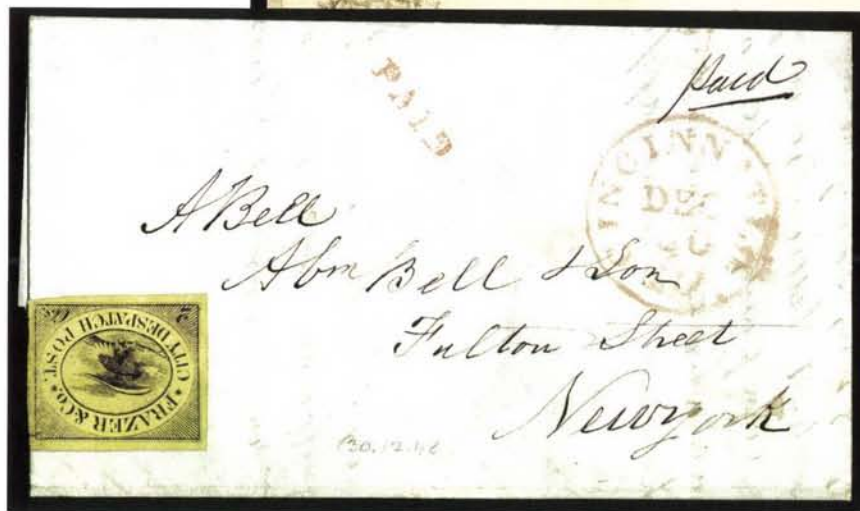 Paid
PAID
CINCINNATI
DEC
30
A Bell
Abm Bell & Son
Fulton Street
New york
FRAZER & CO.
CITY DESPATCH POST.
2 Cts